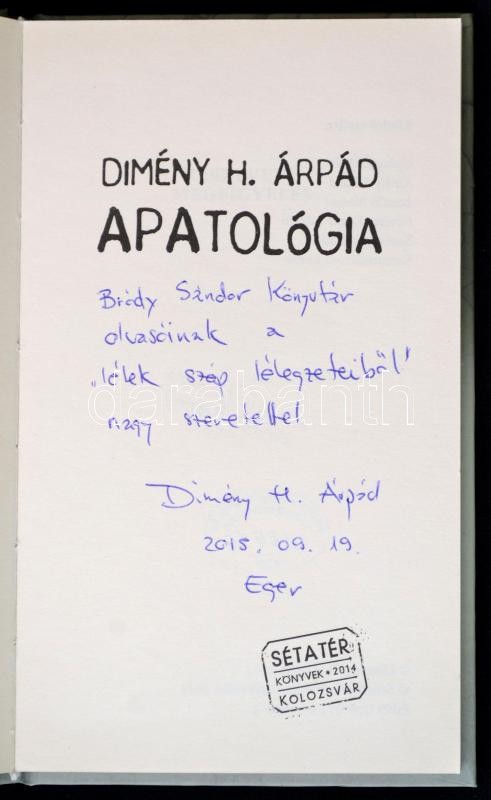 DIMÉNY H. ÁRPÁD
APATOLÓGIA
Bródy Sándor Könyvtár
olvasóinak a
„lélek szép lélegzeteiből"
nagy szeretettel
darabanth
Dimény H. Árpád
2015. 09. 19.
Eger
SÉTATÉR
KÖNYVEK • 2014
KOLOZSVÁR